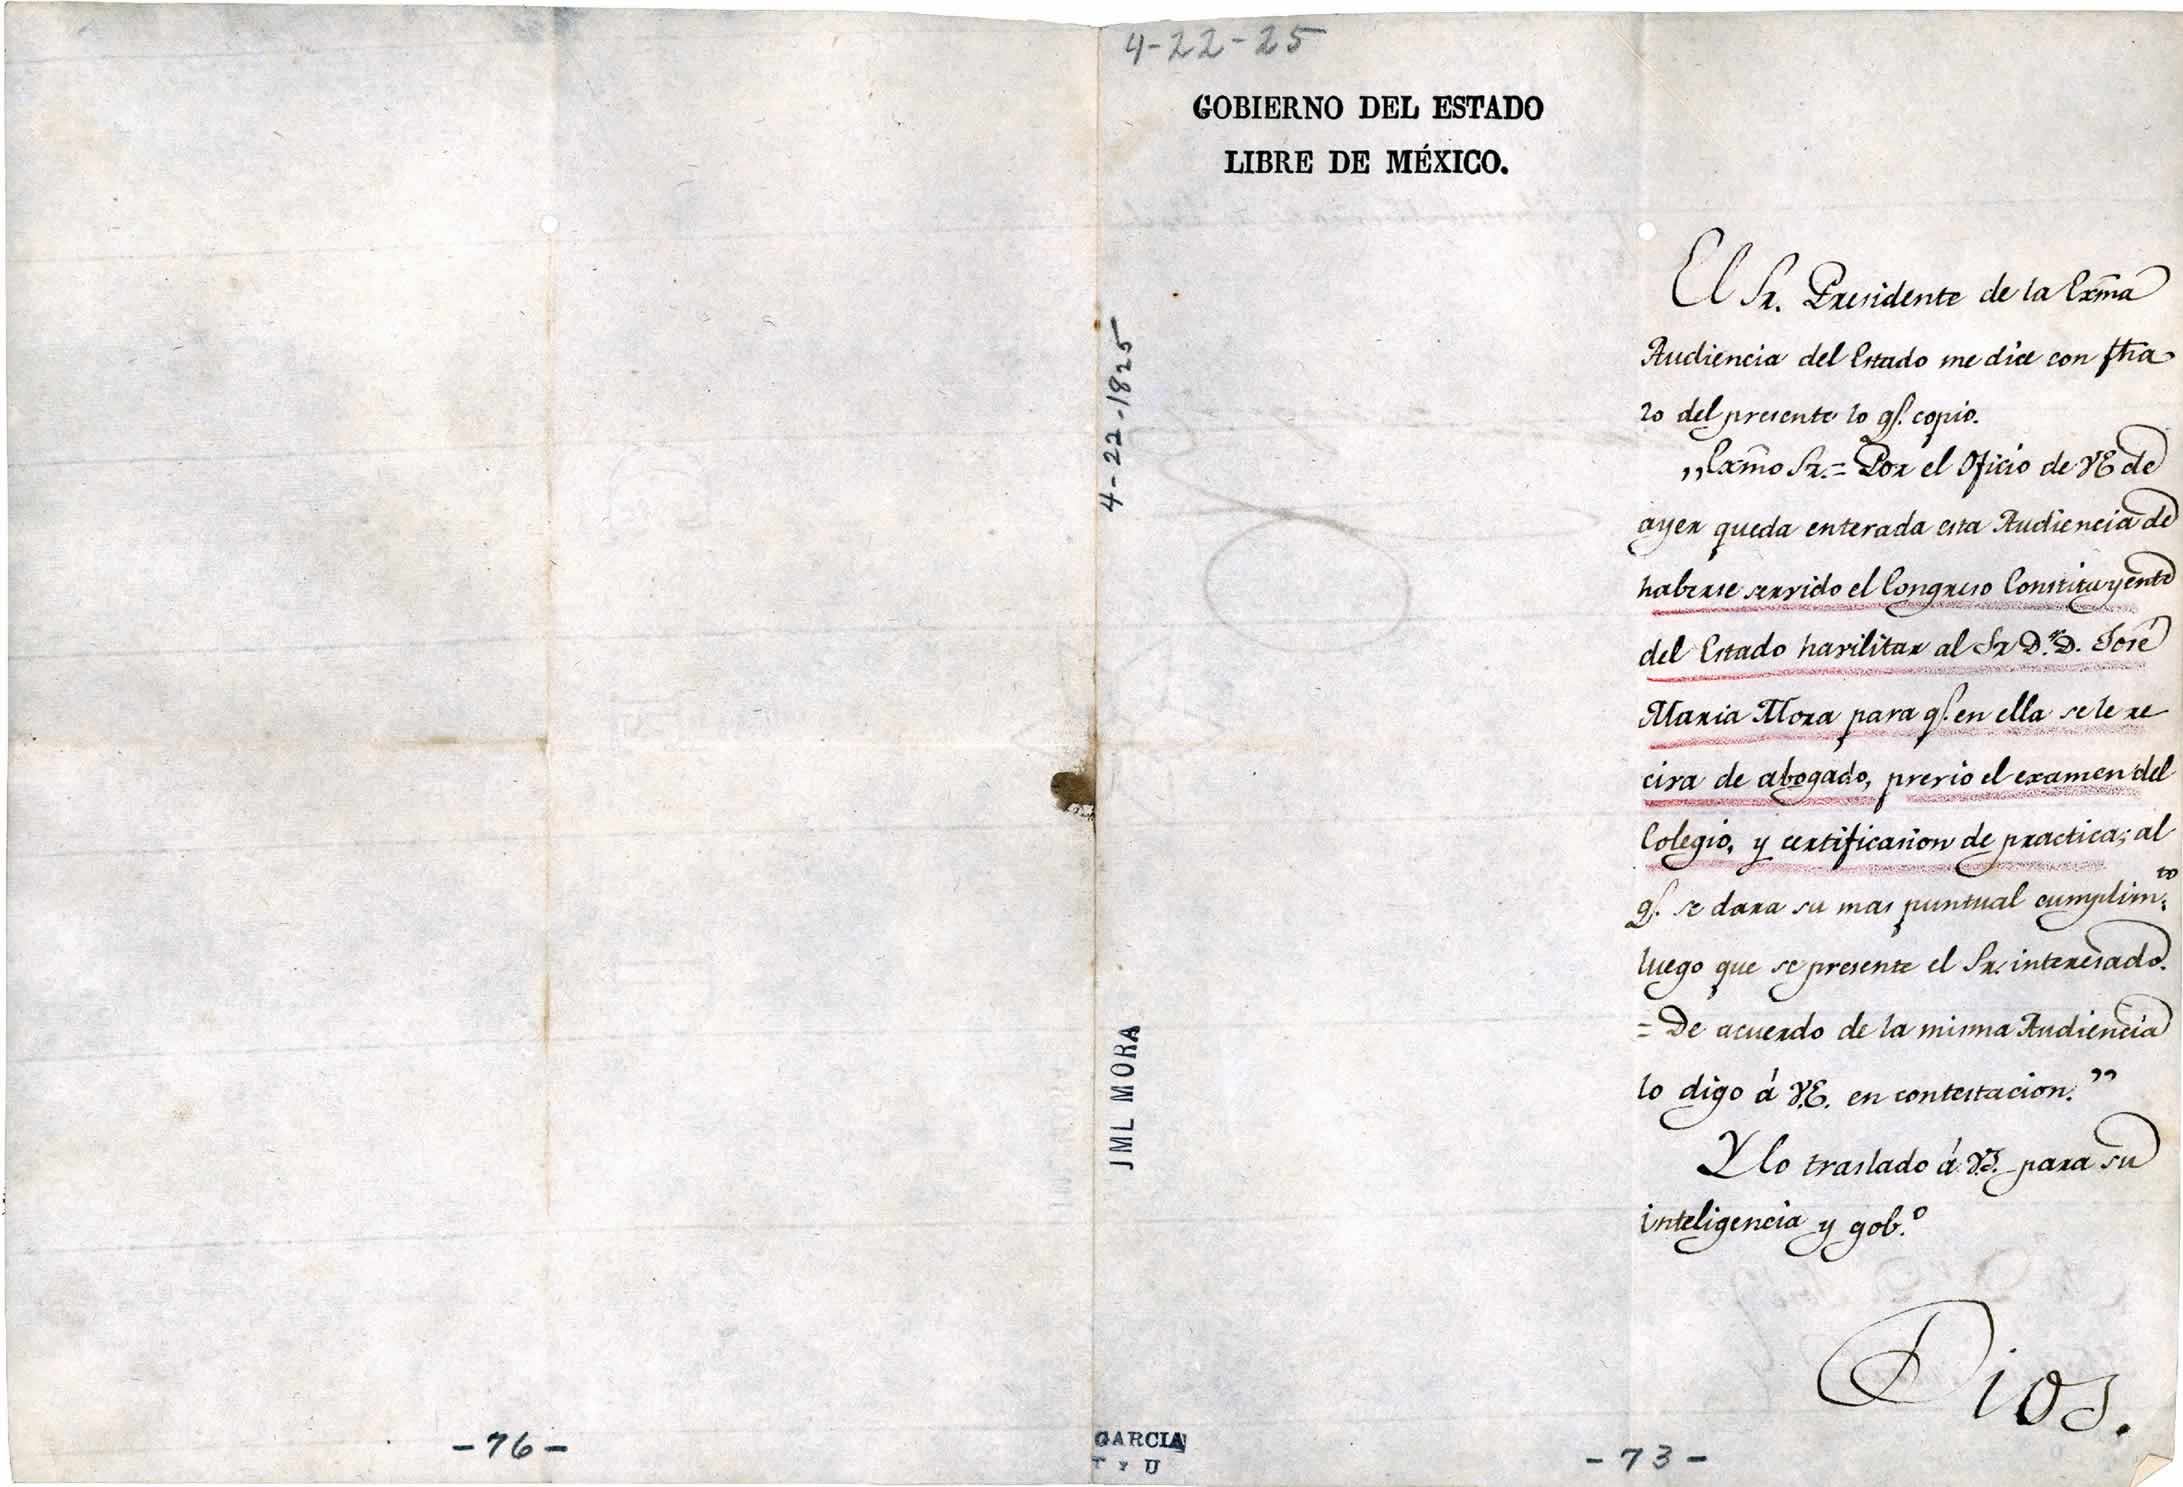 4-22-25
GOBIERNO DEL ESTADO
LIBRE DE MÉXICO.
El Sr. Presidente de la Exma
Audiencia del Estado me dice con fha
20 del presente lo q. copio.
„Exmo Sr.= Por el Oficio de VE de
ayer queda enterada esta Audiencia de
haberse servido el Congreso Constituyente
del Estado havilitar al Sr Dr. D. José
Maria Mora para q. en ella se le re
civa de abogado, previo el examen del
Colegio, y certificasion de practica; al
q. se dara su mas puntual cumplimto.
luego que se presente el Sr. interesado.
= De acuerdo de la misma Audiencia
lo digo á V.E. en contestacion.”
Y lo traslado á V.S. para su
inteligencia y gob.o
Dios.
4-22-1825
JML MORA
-76-
GARCIA
-73-